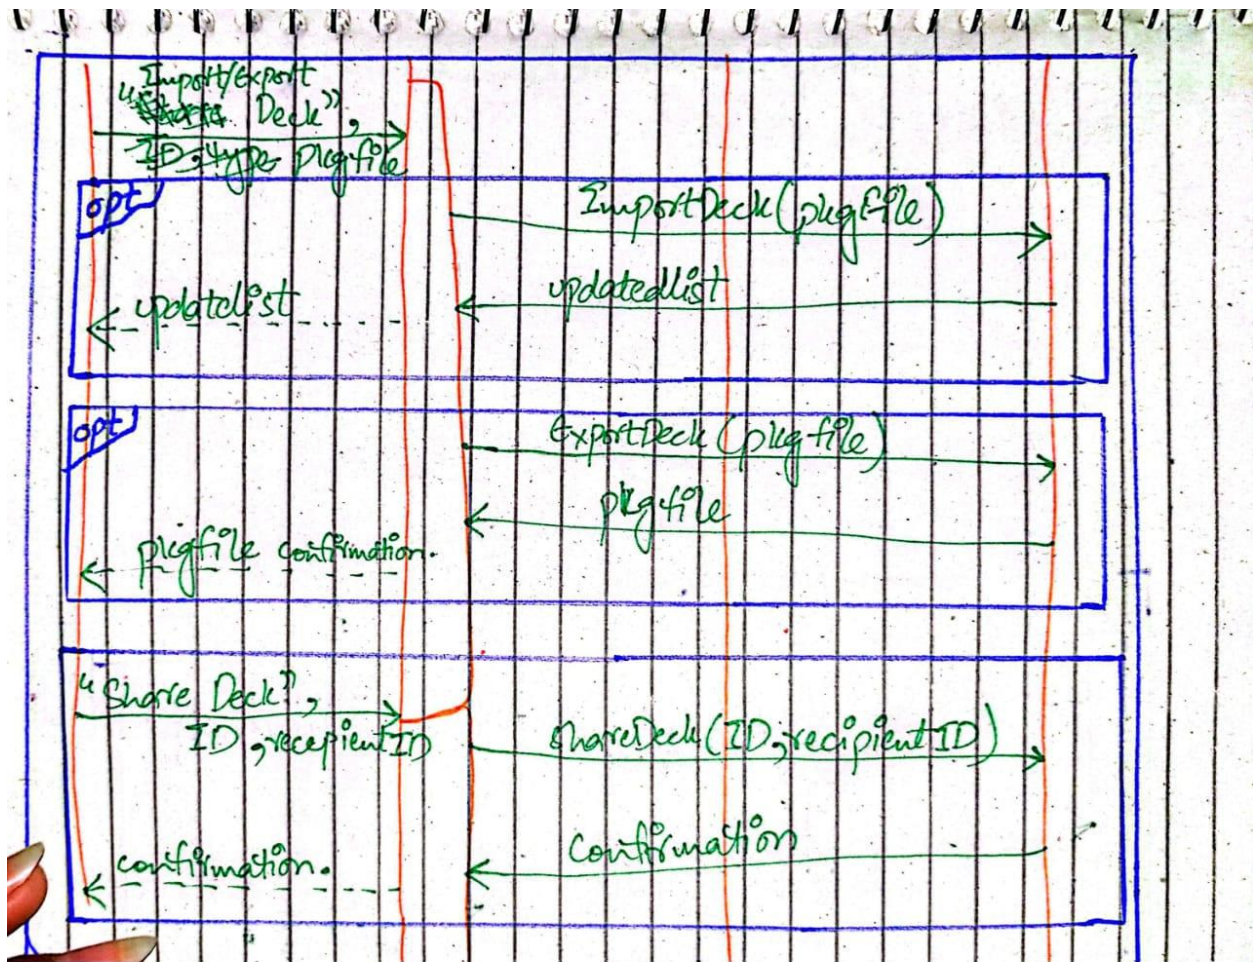 Import/Export
" Deck",
ID, type pkgfile
opt
ImportDeck(pkgfile)
updatedlist
updatelist
opt
ExportDeck(pkgfile)
pkgfile
pkgfile confirmation.
"Share Deck",
ID, recepientID
shareDeck(ID, recipientID)
confirmation
confirmation.